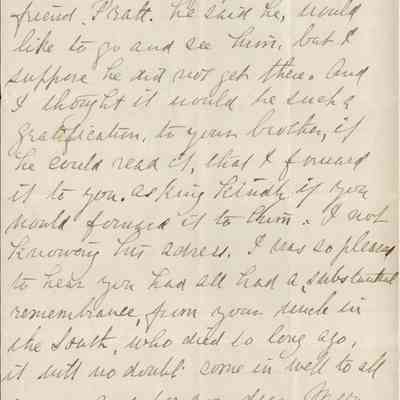 friend Pratt. he said he, would
like to go and see him, but I
suppose he did not get there. And
I thought it would be such a
gratification, to your brother, if
he could read it, that I forward
it to you. asking kindly if you
would forward it to him. I not
knowing his adress. I was so pleased
to hear you had all had a substantial
remembrance, from your uncle in
the South, who died so long ago,
it will no doubt come in well to all